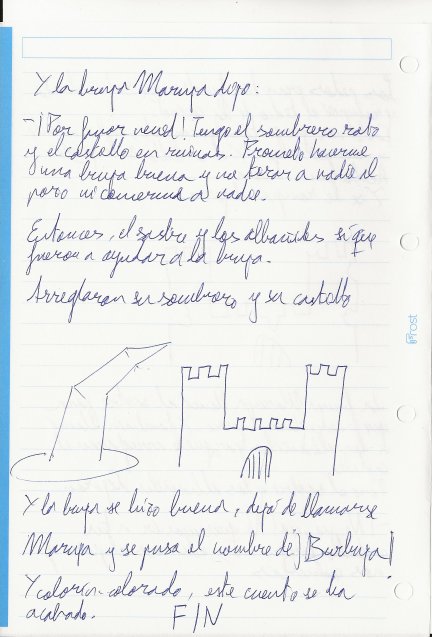 Y la bruja Maruja dijo:
-¡Por favor venid! Tengo el sombrero roto
y el castillo en ruinas. Prometo hacerme
una bruja buena y no tirar a nadie al
pozo ni comerme a nadie.
Entonces, el sastre y los albañiles si que
fueron a ayudar a la bruja.
Arreglaron su sombrero y su castillo
Y la bruja se hizo buena, dejó de llamarse
Maruja y se puso el nombre de ¡Burbuja!
Y colorín-colorado, este cuento se ha
acabado. FIN
frost